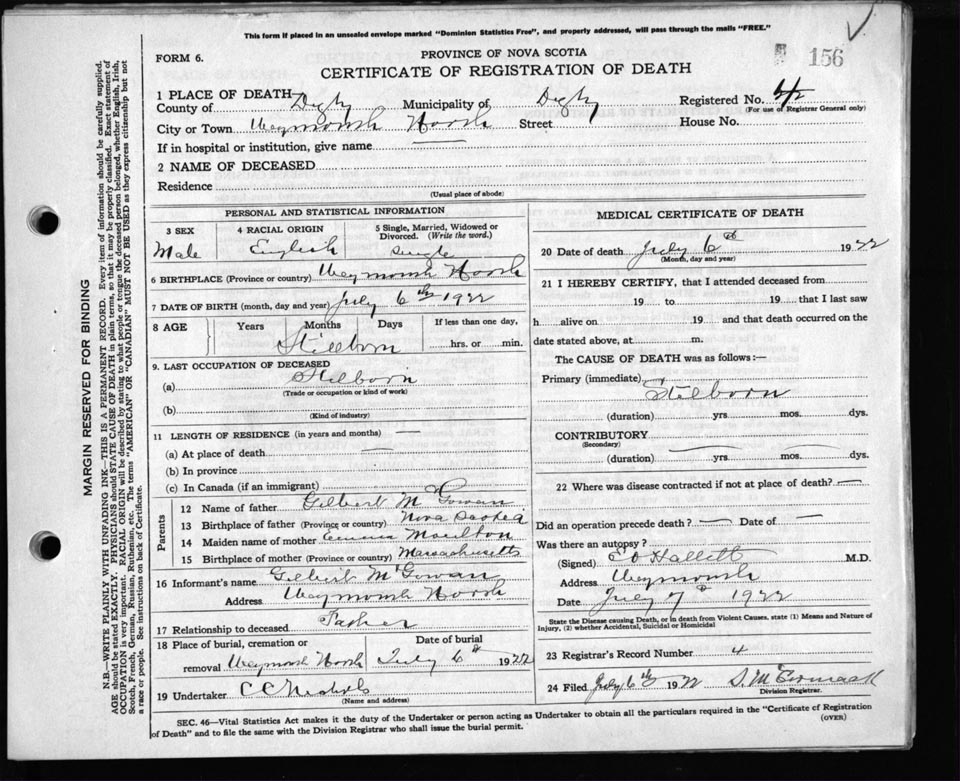 This form if placed in an unsealed envelope marked "Dominion Statistics Free", and properly addressed, will pass through the mails "FREE."
FORM 6.
PROVINCE OF NOVA SCOTIA
156
CERTIFICATE OF REGISTRATION OF DEATH
1 PLACE OF DEATH
County of Digby Municipality of Digby Registered No. 4
(For use of Registrar General only)
City or Town Weymouth North Street House No.
If in hospital or institution, give name —
2 NAME OF DECEASED
Residence
(Usual place of abode)
PERSONAL AND STATISTICAL INFORMATION
3 SEX
Male
4 RACIAL ORIGIN
English
5 Single, Married, Widowed or
Divorced. (Write the word.)
Single
6 BIRTHPLACE (Province or country) Weymouth North
7 DATE OF BIRTH (month, day and year) July 6th 1922
8 AGE Years Months Days If less than one day,
Stillborn hrs. or min.
9. LAST OCCUPATION OF DECEASED
(a) Stilborn
(Trade or occupation or kind of work)
(b)
(Kind of industry)
11 LENGTH OF RESIDENCE (in years and months) —
(a) At place of death —
(b) In province
(c) In Canada (if an immigrant)
Parents
12 Name of father Gilbert McGowan
13 Birthplace of father (Province or country) Nova Scotia
14 Maiden name of mother Emma Moulton
15 Birthplace of mother (Province or country) Massachusetts
16 Informant's name Gilbert McGowan
Address Weymouth North
17 Relationship to deceased Father
18 Place of burial, cremation or
removal Weymouth North
Date of burial
July 6th 1922
19 Undertaker C C Nichols
(Name and address)
MEDICAL CERTIFICATE OF DEATH
20 Date of death July 6th 1922
(Month, day and year)
21 I HEREBY CERTIFY, that I attended deceased from
19 to 19 that I last saw
h alive on 19 and that death occurred on the
date stated above, at m.
The CAUSE OF DEATH was as follows:—
Primary (immediate) Stilborn
(duration) yrs. mos. dys.
CONTRIBUTORY
(Secondary)
(duration) yrs. mos. dys.
22 Where was disease contracted if not at place of death? —
Did an operation precede death? — Date of —
Was there an autopsy?
(Signed) Hallett M.D.
Address Weymouth
Date July 7th 1922
State the Disease causing Death, or in death from Violent Causes, state (1) Means and Nature of
Injury, (2) whether Accidental, Suicidal or Homicidal
23 Registrar's Record Number 4
24 Filed July 6th 1922 S. McCormack
Division Registrar.
SEC. 46—Vital Statistics Act makes it the duty of the Undertaker or person acting as Undertaker to obtain all the particulars required in the "Certificate of Registration
of Death" and to file the same with the Division Registrar who shall issue the burial permit.
(OVER)
MARGIN RESERVED FOR BINDING
N.B.—WRITE PLAINLY WITH UNFADING INK—THIS IS A PERMANENT RECORD. Every item of information should be carefully supplied.
AGE should be stated EXACTLY. PHYSICIANS should STATE CAUSE OF DEATH in plain terms, so that it may be properly classified. Exact statement of
OCCUPATION is very important. RACIAL ORIGIN will be described by stating to what people or tongue the deceased person belonged, whether English, Irish,
Scotch, French, German, Russian, Ruthenian, etc. The terms "AMERICAN" or "CANADIAN" MUST NOT BE USED as they express citizenship but not
a race or people. See instructions on back of Certificate.